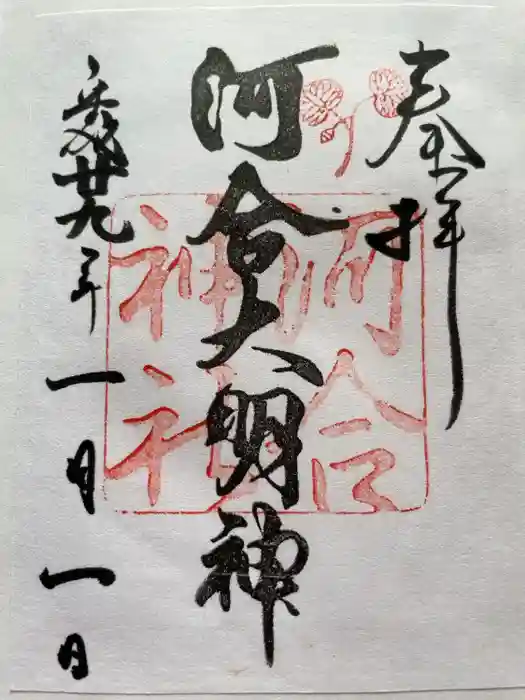 奉拝
河合大明神
河合
神社
平成廿九年一月一日